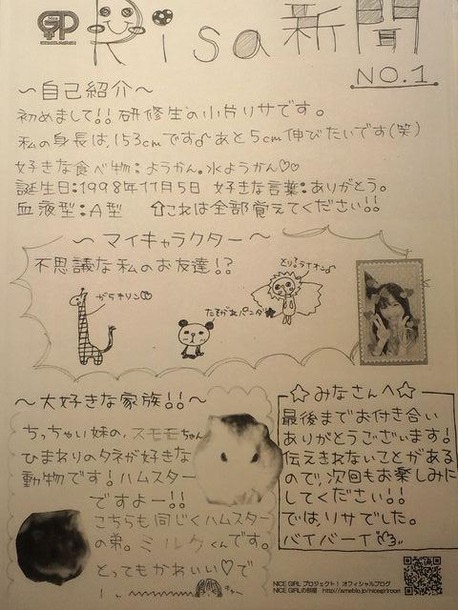 Risa新聞
NO.1
〜自己紹介〜
初めまして!!研修生の小片リサです。
私の身長は、153cmです♂あと5cm伸びたいです(笑)
好きな食べ物:ようかん。水ようかん♡♡
誕生日:1998年11月5日 好きな言葉:ありがとう。
血液型:A型 ⇧これは全部覚えてください!!
〜マイキャラクター〜
不思議な私のお友達!?
がらキリン
たそがれパンダ
とりライオン
〜大好きな家族!!〜
ちっちゃい妹の、スモモちゃん
ひまわりのタネが好きな
動物です!ハムスター
ですよー!!
こちらも同じくハムスター
の弟。ミルクくんです。
とってもかわいい♡で
☆みなさんへ☆
最後までお付き合い
ありがとうございます!
伝えきれないことがある
ので、次回もお楽しみに
してください!!
では、リサでした。
バイバーイ
NICE GIRL プロジェクト! オフィシャルブログ
NICE GIRLの部屋 http://ameblo.jp/nicegirlroom